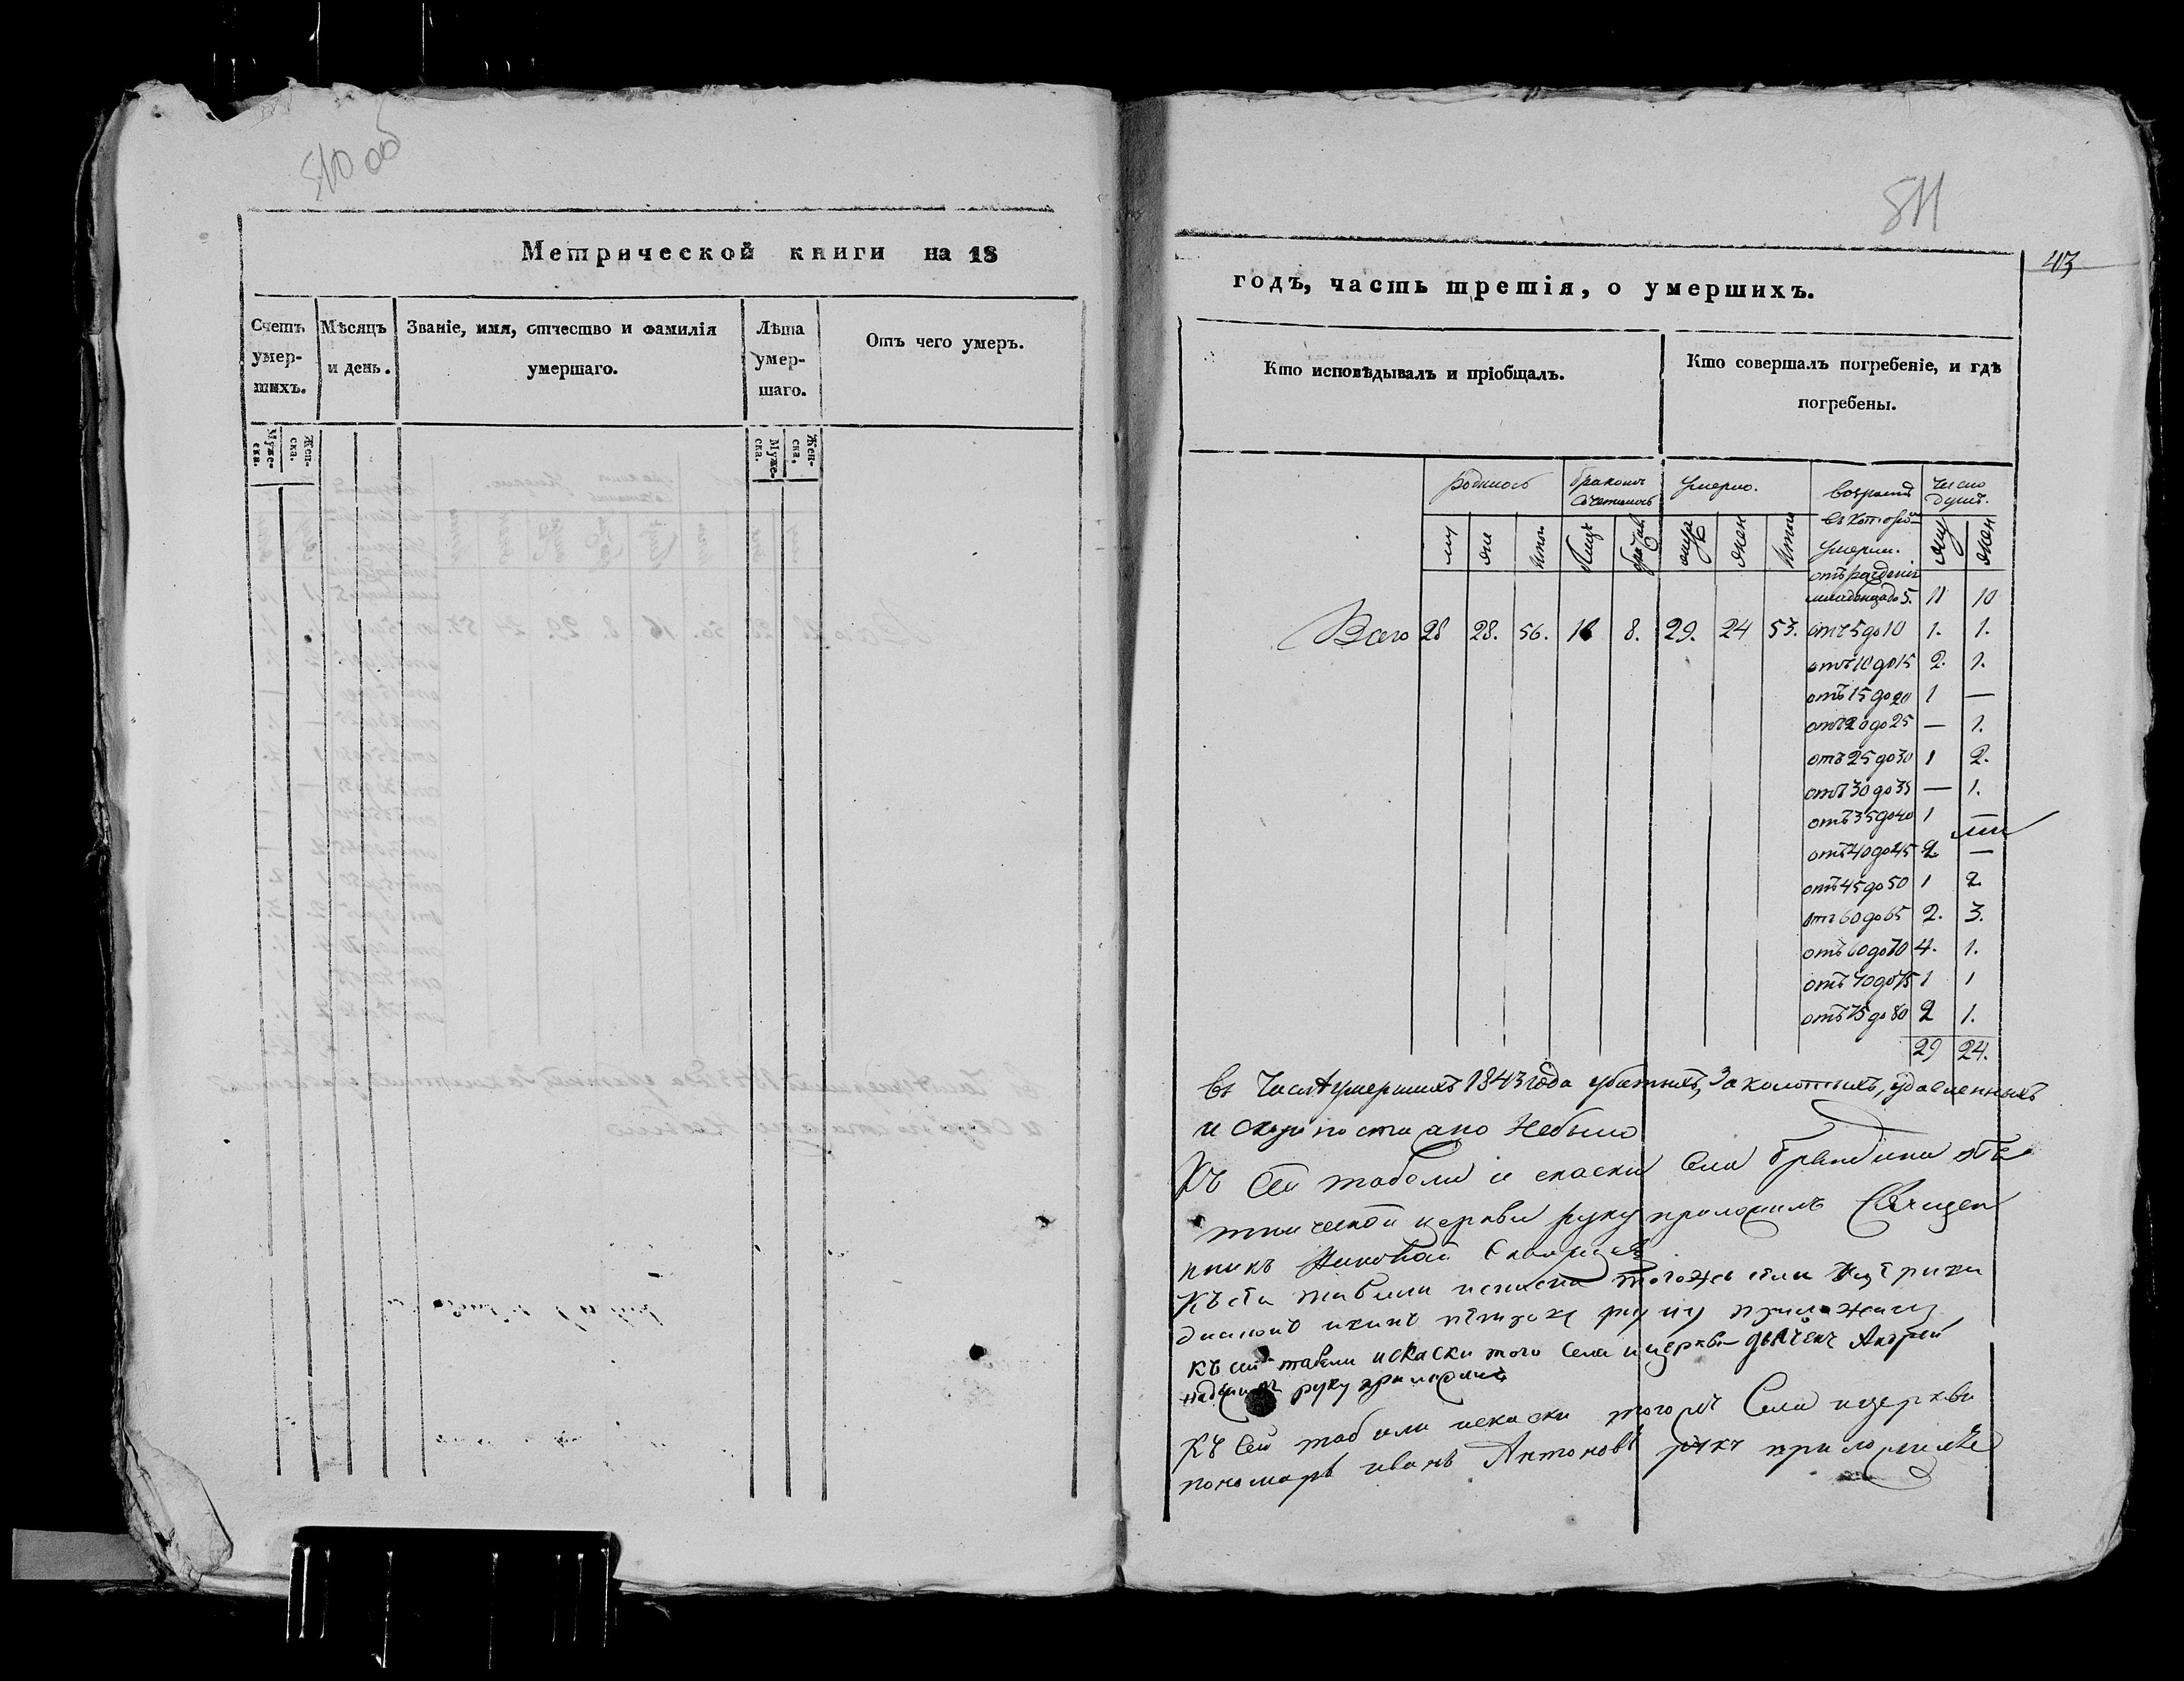 510 об
Метрической книги на 18
Счетъ умер-шихъ.
Мѣсяцъ и день.
Званіе, имя, отчество и фамилія умершаго.
Лѣта умер-шаго.
Отъ чего умеръ.
Муже-ска.
Жен-ска.
Муже-ска.
Жен-ска.
511
43
годъ, часть третія, о умершихъ.
Кто исповѣдывалъ и пріобщалъ.
Кто совершалъ погребеніе, и гдѣ погребены.
родилось
бракомъ
умерло.
возрастъ
число душъ.
умерли.
му
жен
младенца до 5. 11 10
Всего 28 28. 56. 16 8. 29. 24 53. отъ 5 до 10 1. 1.
отъ 10 до 15 2. 1.
отъ 15 до 20 1 —
отъ 20 до 25 — 1.
отъ 25 до 30 1 2.
отъ 30 до 35 — 1.
отъ 35 до 40 1 —
отъ 40 до 45 2. —
отъ 45 до 50 1 2.
отъ 60 до 65 2. 3.
отъ 60 до 70 4. 1.
отъ 70 до 75 1 1
отъ 75 до 80 2 1.
29 24.
въ числѣ умершихъ 1843 года убитыхъ, заколотыхъ, удавленныхъ
и скоропостижно небыло
Къ сей табели и скаски села
церкви руку приложилъ Священ
никъ
Къ сей табели искаски тогожъ села
руку приложилъ
къ сей табели искаски того села и церкви дьячекъ Андрей
руку приложилъ
Къ сей табели искаски тогожъ села ицеркви
пономарь иванъ Антоновъ руку приложилъ